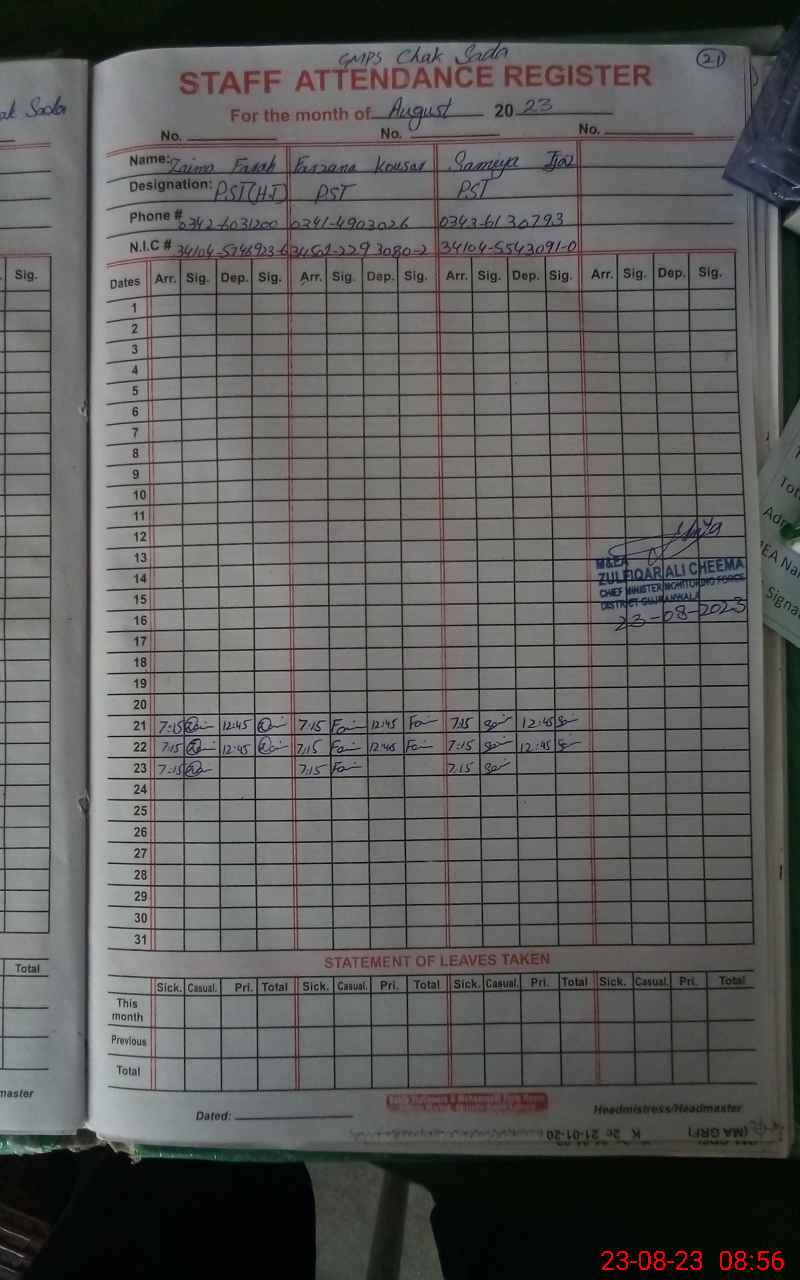 ak Sada
Sig.
Total
master
GMPS Chak Sada
21
STAFF ATTENDANCE REGISTER
For the month of August 20 23
No. No. No.
Name: Zaima Farah Farzana Kousar Samiya Ijaz
Designation: P.ST(H.T) PST P.ST
Phone # 0342-6031200 0341-4903026 0343-6130793
N.I.C # 34104-5746923-6 34501-2293080-2 34104-5543091-0
Dates Arr. Sig. Dep. Sig. Arr. Sig. Dep. Sig. Arr. Sig. Dep. Sig. Arr. Sig. Dep. Sig.
1
2
3
4
5
6
7
8
9
10
11
12
13
14
15
16
17
18
19
20
21 7:15 12:45 7:15 12:45 7:15 12:45
22 7:15 12:45 7:15 12:45 7:15 12:45
23 7:15 7:15 7:15
24
25
26
27
28
29
30
31
M&EA
ZULFIQAR ALI CHEEMA
CHIEF MINISTER MONITORING FORCE
DISTRICT GUJRANWALA
23-08-2023
STATEMENT OF LEAVES TAKEN
Sick. Casual. Pri. Total Sick. Casual. Pri. Total Sick. Casual. Pri. Total Sick. Casual. Pri. Total
This month
Previous
Total
Dated: Headmistress/Headmaster
(MA GRF)
Signa
23-08-23 08:56